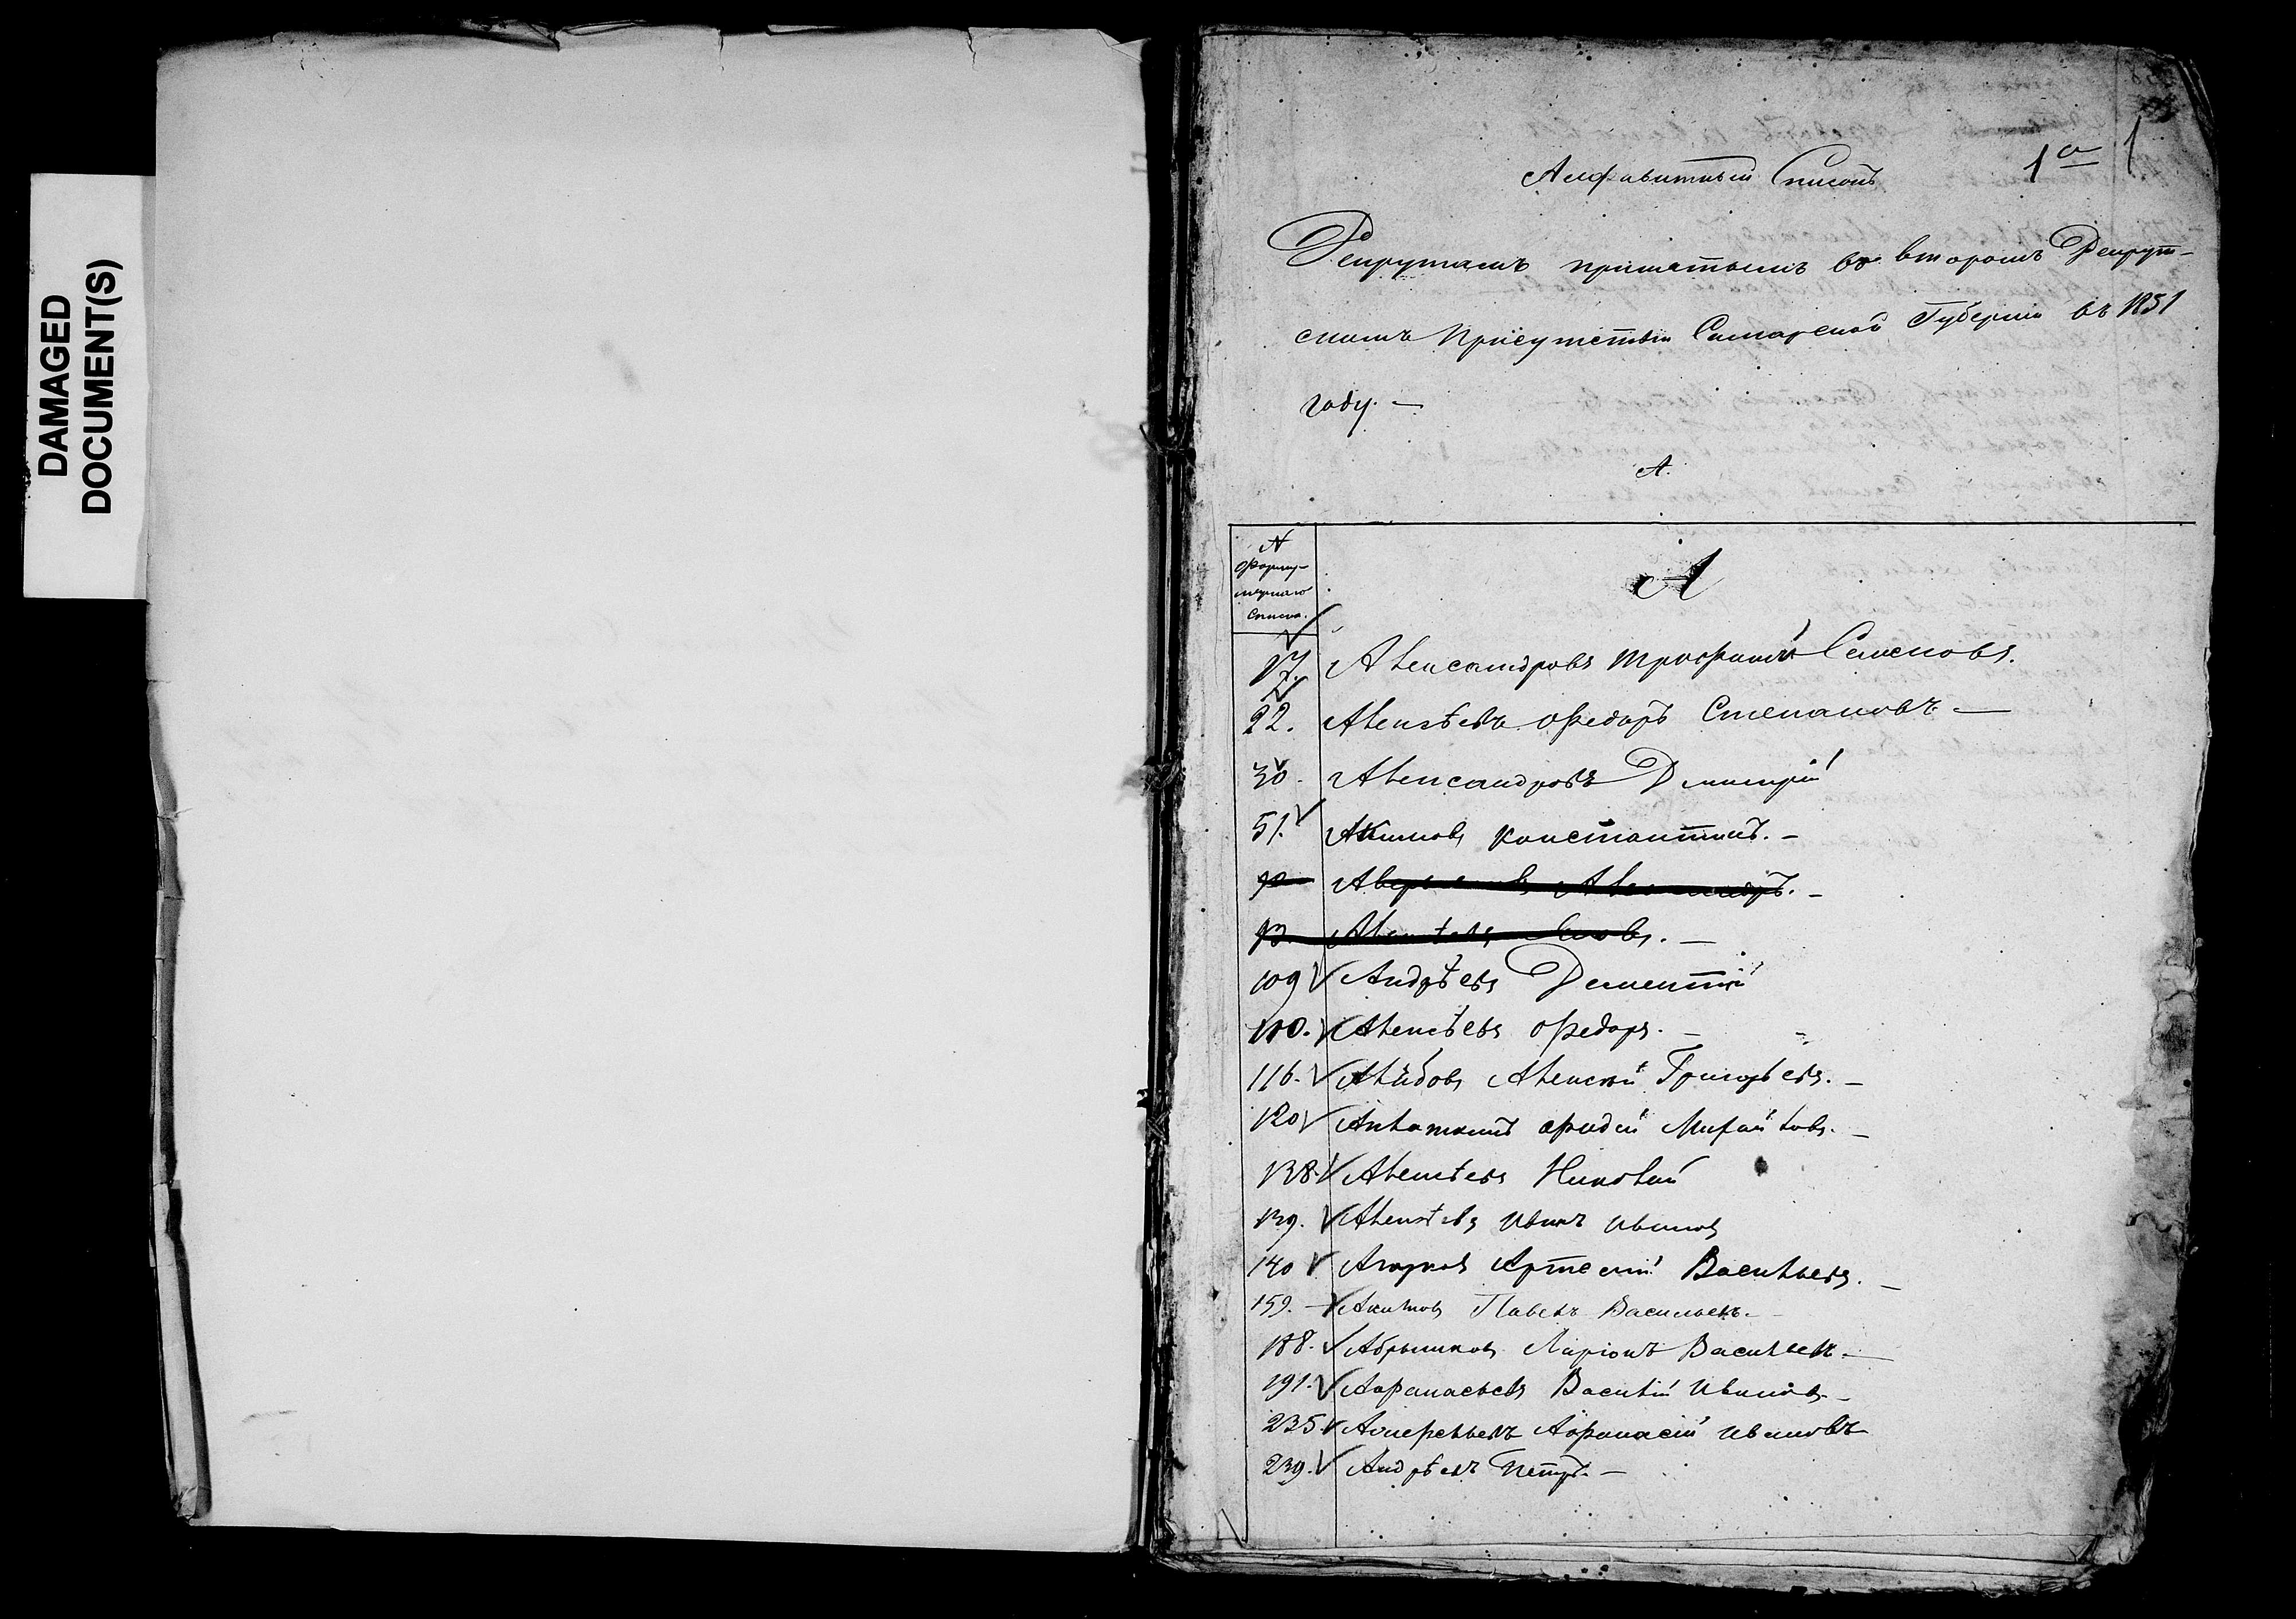 DAMAGED
DOCUMENT(S)
1а 1
Алфавитный Списокъ
Рекрутамъ принятымъ во второмъ Рекрут-
скомъ Присутствіи Самарской Губерніи въ 1851
году. —
А.
№
Форму-
лярнаго
списка.
А
17. Александровъ Трофимъ Семеновъ.
22. Алексѣевъ Федоръ Степановъ —
30. Александровъ Дмитрій
51. Акимовъ Константинъ. —
Аверь Александръ. —
Алексѣевъ Яковъ. —
109 Андрѣевъ Дементій
110. Алексѣевъ Федоръ. —
116. Алексѣй Григорьевъ. —
120 Михайловъ. —
138. Алексѣевъ Николай
139. Алексѣевъ Иванъ Ивановъ
140 Артемій Васильевъ. —
159. — Акимовъ Павелъ Васильевъ. —
188. Абрышковъ Ларіонъ Васильевъ. —
191. Афанасьевъ Василій Ивановъ. —
235. Афанасій Ивановъ
239. Андрѣевъ Петръ. —